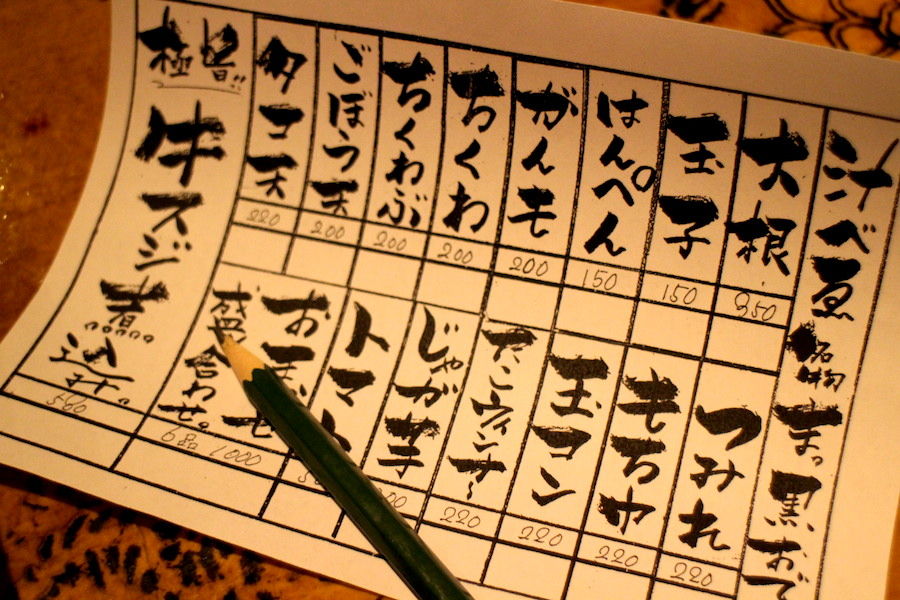 汁べゑ 名物 まっ黒おで
大根
玉子
150
はんぺん
150
がんも
200
ちくわ
200
ちくわぶ
200
ごぼう天
200
コ天
220
つみれ
220
もち
220
玉コン
220
たこウィンナー
220
じゃが芋
トマト
お
盛り合わせ。
6品 1000
極旨!!
牛スジ煮込み。